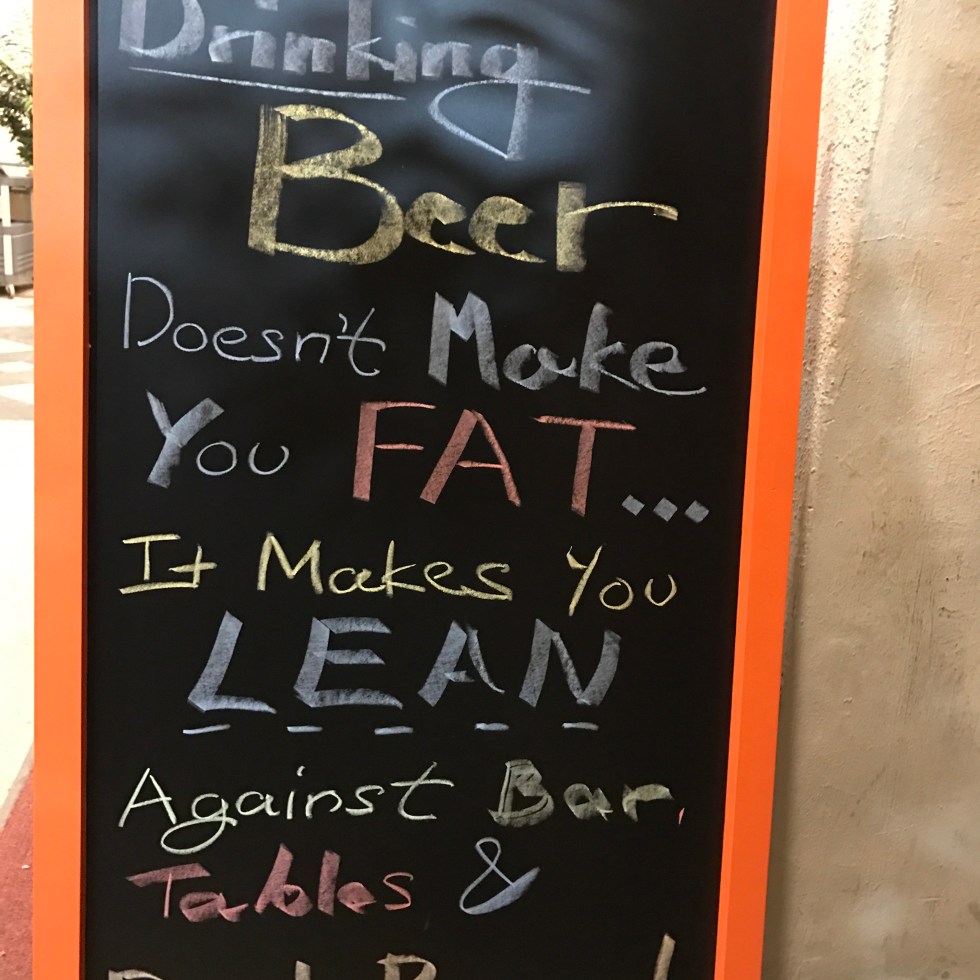 Drinking
Beer
Doesn't Make
You FAT...
It Makes You
LEAN
Against Bar,
Tables &